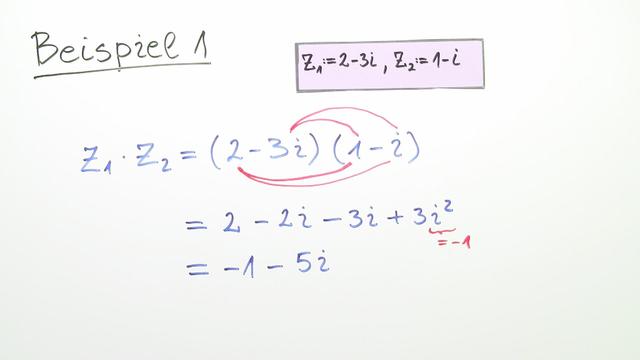 Beispiel 1
Z₁:=2-3i, Z₂:=1-i
Z₁·Z₂=(2-3i)(1-i)
= 2 - 2i - 3i + 3i²
=-1
= -1 - 5i